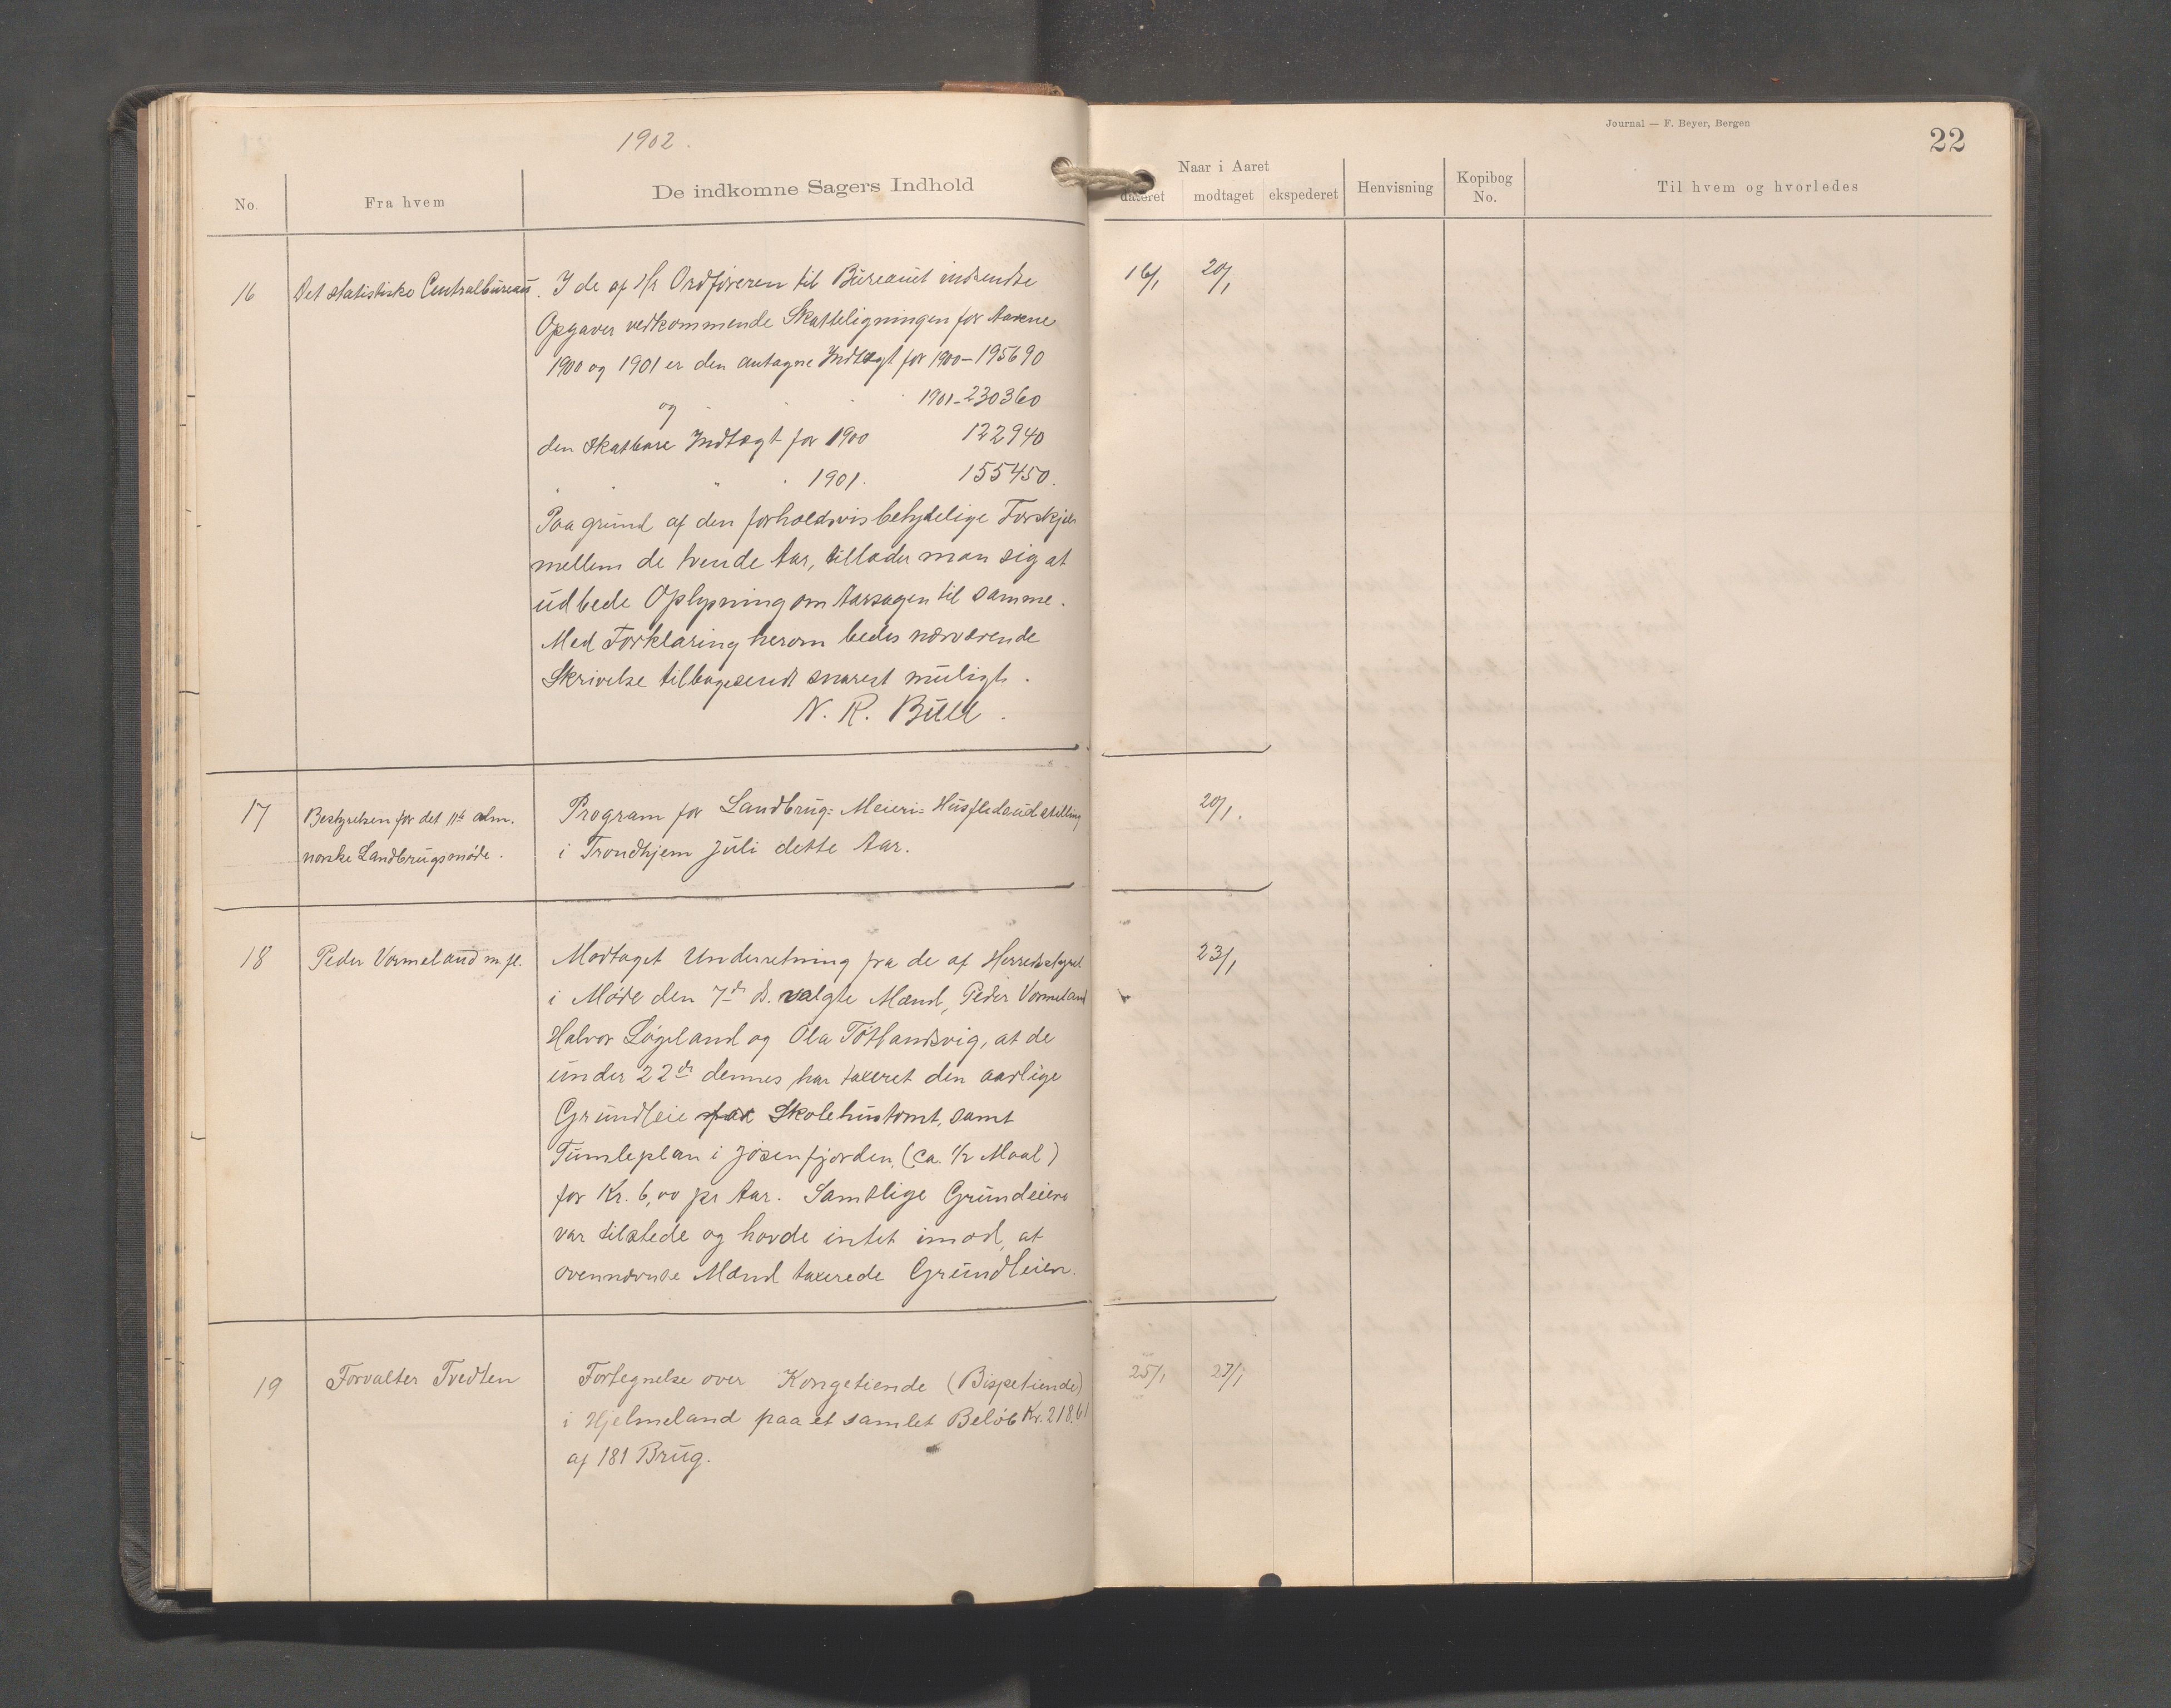 1902.
Journal — F. Beyer, Bergen
22
No.
Fra hvem
De indkomne Sagers Indhold
Naar i Aaret
dateret
modtaget
ekspederet
Henvisning
Kopibog No.
Til hvem og hvorledes
16
Det statistiske Centralbureau.
I de af Hr Ordføreren til Bureauet indsendte
16/1
20/1
Opgaver vedkommende Skatteligningen for Aarene
1900 og 1901 er den antagne Indtægt for 1900 – 195690
og " " " 1901 – 230360
den skatbare Indtægt for 1900 122940
" " " " 1901. 155450.
Paa grund af den forholdsvis betydelige Forskjel
mellem de tvende Aar, tillader man sig at
udbede Oplysning om Aarsagen til samme.
Med Forklaring herom bedes nærværende
Skrivelse tilbagesendt snarest muligt.
N. R. Bull.
17
Bestyrelsen for det 11te alm.
norske Landbrugsmøde.
Program for Landbrug= Meieri= Husflidsudstilling
i Trondhjem Juli dette Aar.
20/1.
18
Peder Vormeland m. fl.
Modtaget Underretning fra de af Herredsstyret
23/1
i Møde den 7de ds. valgte Mænd, Peder Vormeland
Halvor Løgeland og Ola Tøtlandsvig, at de
under 22de dennes har taxeret den aarlige
Grundleie for Skolehustomt, samt
Tumleplan i Jøsenfjorden (ca. 1/2 Maal)
for Kr. 6,00 pr Aar. Samtlige Grundeiere
var tilstede og havde intet imod, at
ovennævnte Mænd taxerede Grundleien.
19
Forvalter Tvedten
Fortegnelse over Kongetiende (Bispetiende)
25/1
27/1
i Hjelmeland paa et samlet Beløb Kr. 218.61
af 181 Brug.